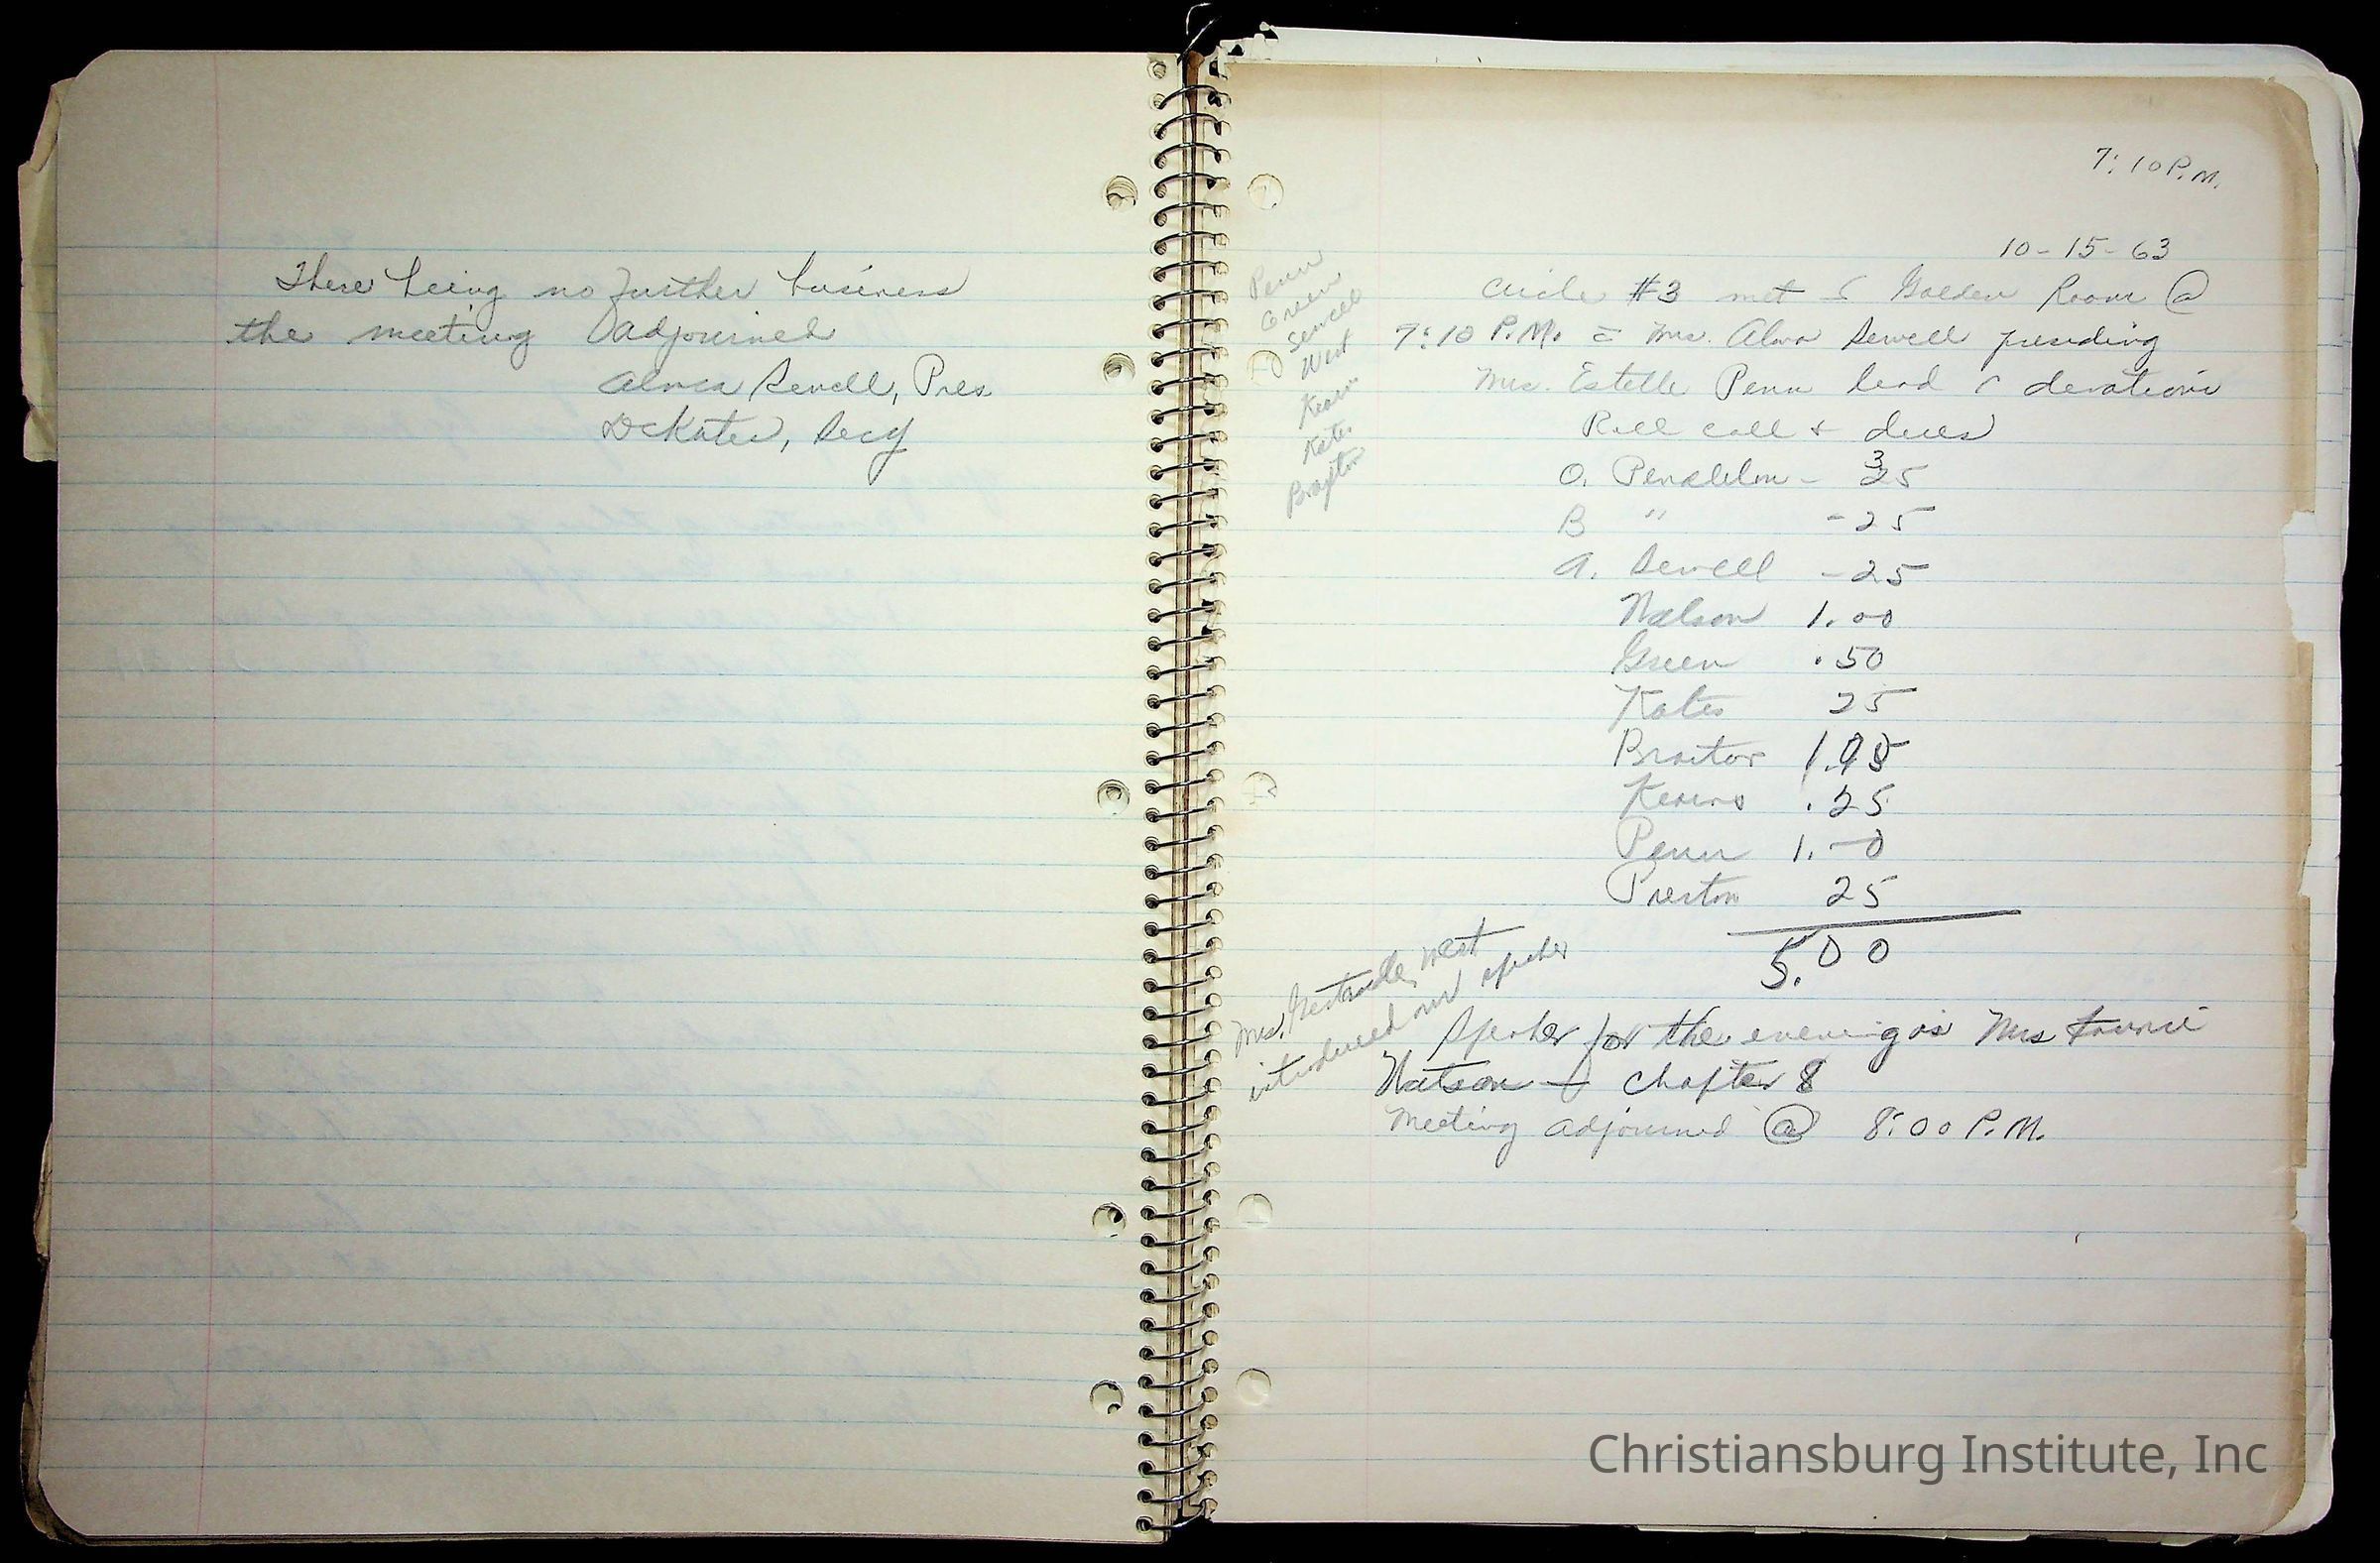 There being no further business
the meeting adjourned
Alma Sewell, Pres.
D Kates, Secy
7:10 P.M.
10-15-63
Penn
Green
Sewell
West
Kearns
Kates
Braxton
Circle #3 met Golden Room @
7:10 P.M. Mrs. Alma Sewell presiding
Mrs. Estelle Penn lead devotions
Roll call + dues
O. Pendleton - 35
B " - 25
A. Sewell - 25
1.00
Green .50
Kates 25
Kearns .25
Penn 1.-0
Preston 25
5.00
Mrs. Gertrude West
introduced our speaker
Speaker for the evening is Mrs
Watson - Chapter 8
Meeting adjourned @ 8:00 P.M.
Christiansburg Institute, Inc